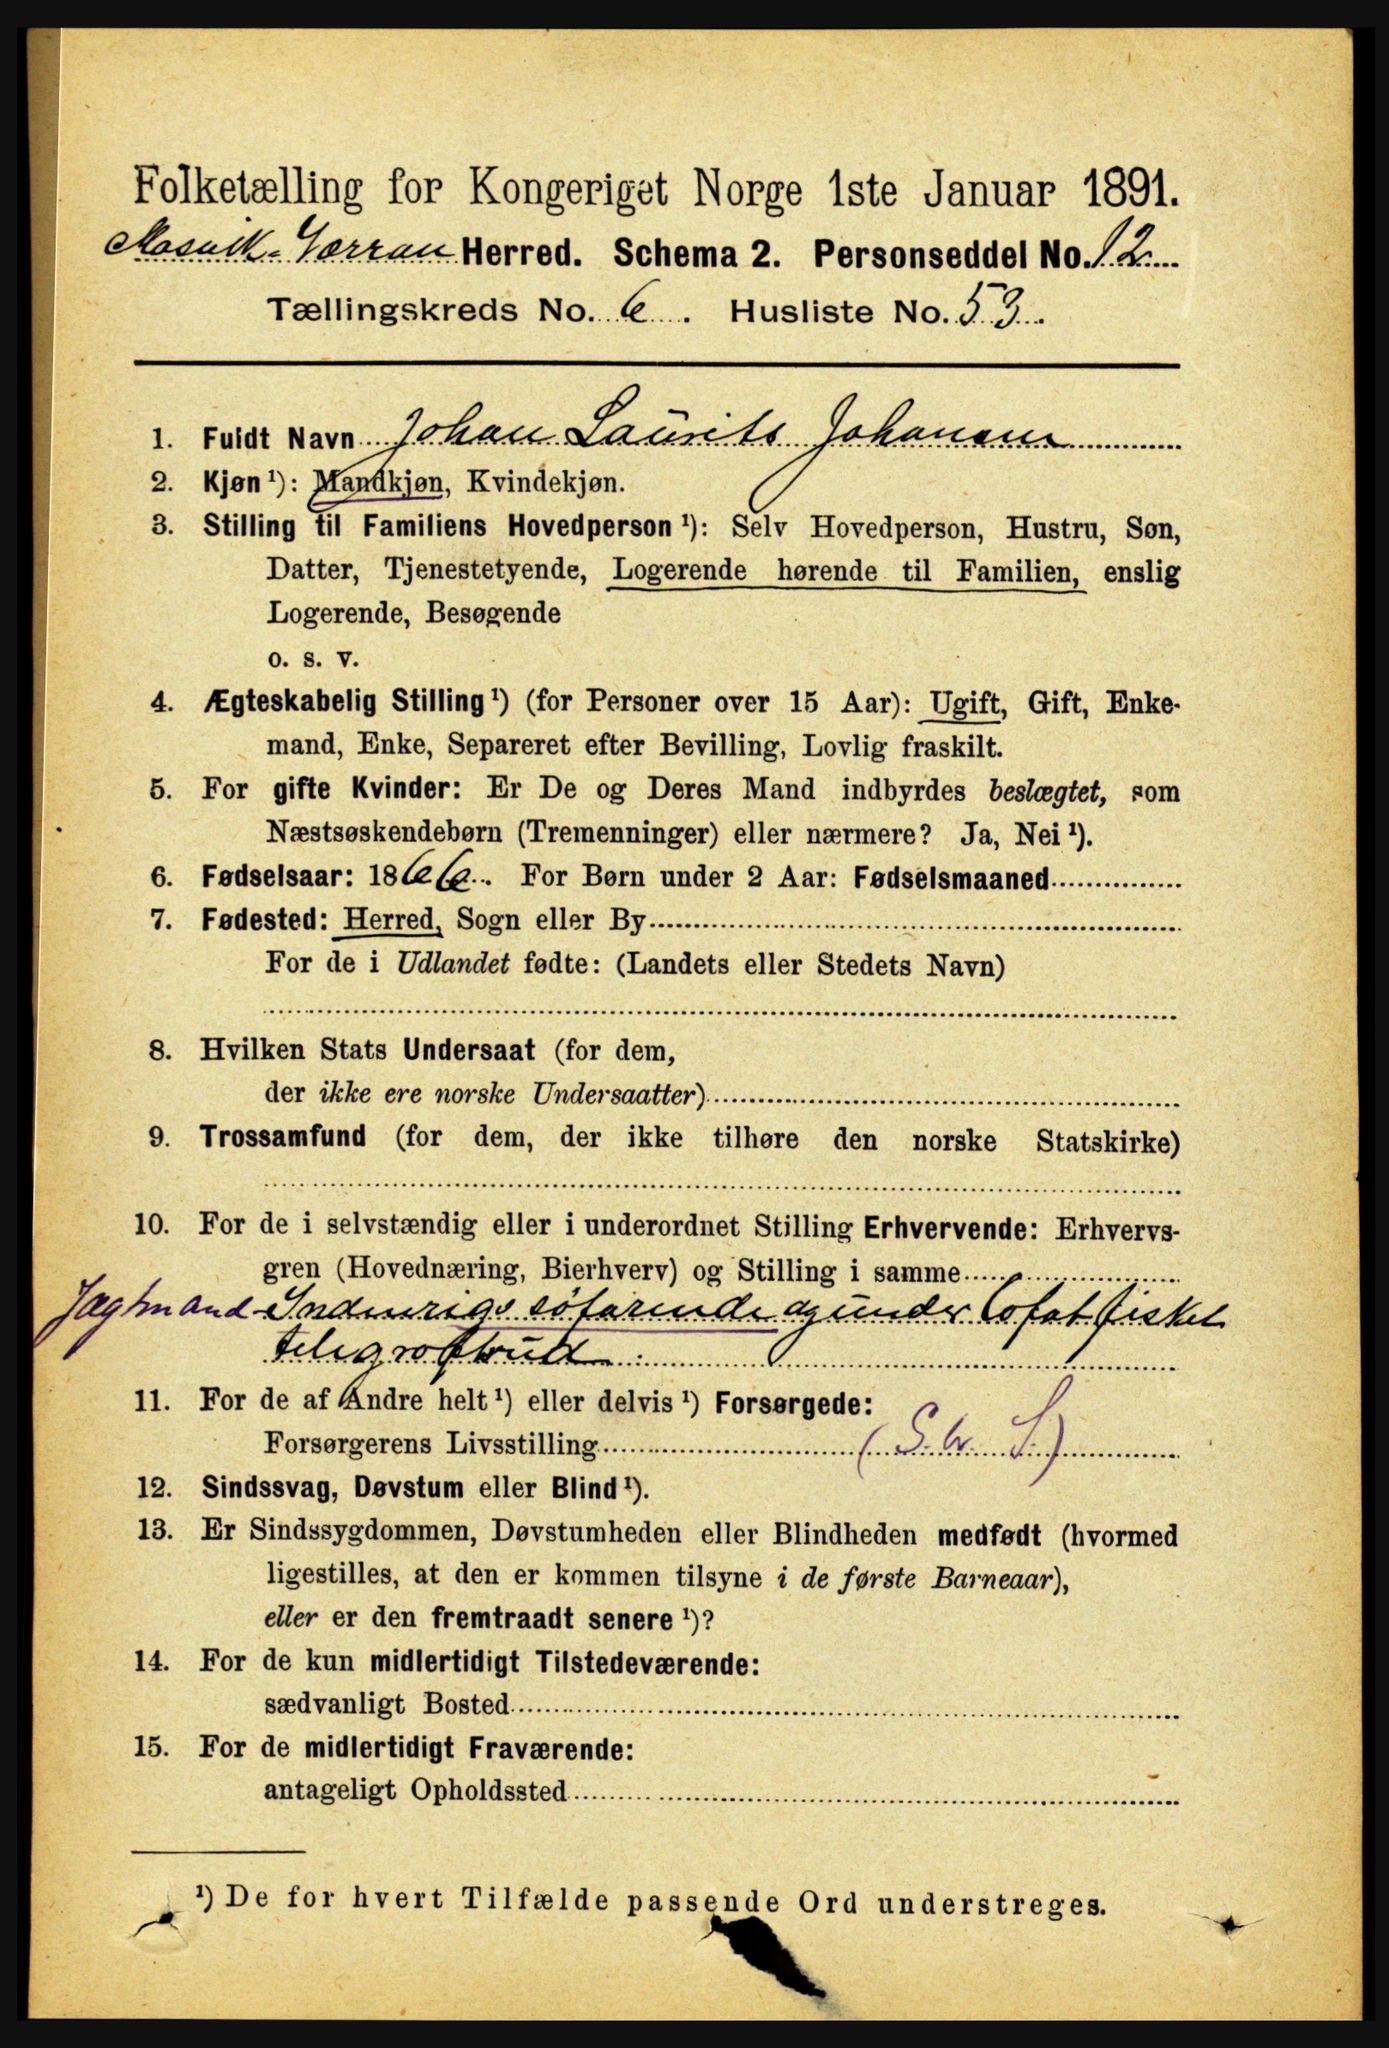 Folketælling for Kongeriget Norge 1ste Januar 1891.
Mosvik-Værran Herred. Schema 2. Personseddel No. 12
Tællingskreds No. 6. Husliste No. 53.
1. Fuldt Navn Johan Laurits Johansen
2. Kjøn ¹): Mandkjøn, Kvindekjøn.
3. Stilling til Familiens Hovedperson ¹): Selv Hovedperson, Hustru, Søn,
Datter, Tjenestetyende, Logerende hørende til Familien, enslig
Logerende, Besøgende
o. s. v.
4. Ægteskabelig Stilling ¹) (for Personer over 15 Aar): Ugift, Gift, Enke-
mand, Enke, Separeret efter Bevilling, Lovlig fraskilt.
5. For gifte Kvinder: Er De og Deres Mand indbyrdes beslægtet, som
Næstsøskendebørn (Tremenninger) eller nærmere? Ja, Nei ¹).
6. Fødselsaar: 1866. For Børn under 2 Aar: Fødselsmaaned
7. Fødested: Herred, Sogn eller By
For de i Udlandet fødte: (Landets eller Stedets Navn)
8. Hvilken Stats Undersaat (for dem,
der ikke ere norske Undersaatter)
9. Trossamfund (for dem, der ikke tilhøre den norske Statskirke)
10. For de i selvstændig eller i underordnet Stilling Erhvervende: Erhvervs-
gren (Hovednæring, Bierhverv) og Stilling i samme
Jagtmand Indenrigs søfarende og under Lofotfisket
telegrafbud
11. For de af Andre helt ¹) eller delvis ¹) Forsørgede:
Forsørgerens Livsstilling (S. S.)
12. Sindssvag, Døvstum eller Blind ¹).
13. Er Sindssygdommen, Døvstumheden eller Blindheden medfødt (hvormed
ligestilles, at den er kommen tilsyne i de første Barneaar),
eller er den fremtraadt senere ¹)?
14. For de kun midlertidigt Tilstedeværende:
sædvanligt Bosted
15. For de midlertidigt Fraværende:
antageligt Opholdssted
¹) De for hvert Tilfælde passende Ord understreges.